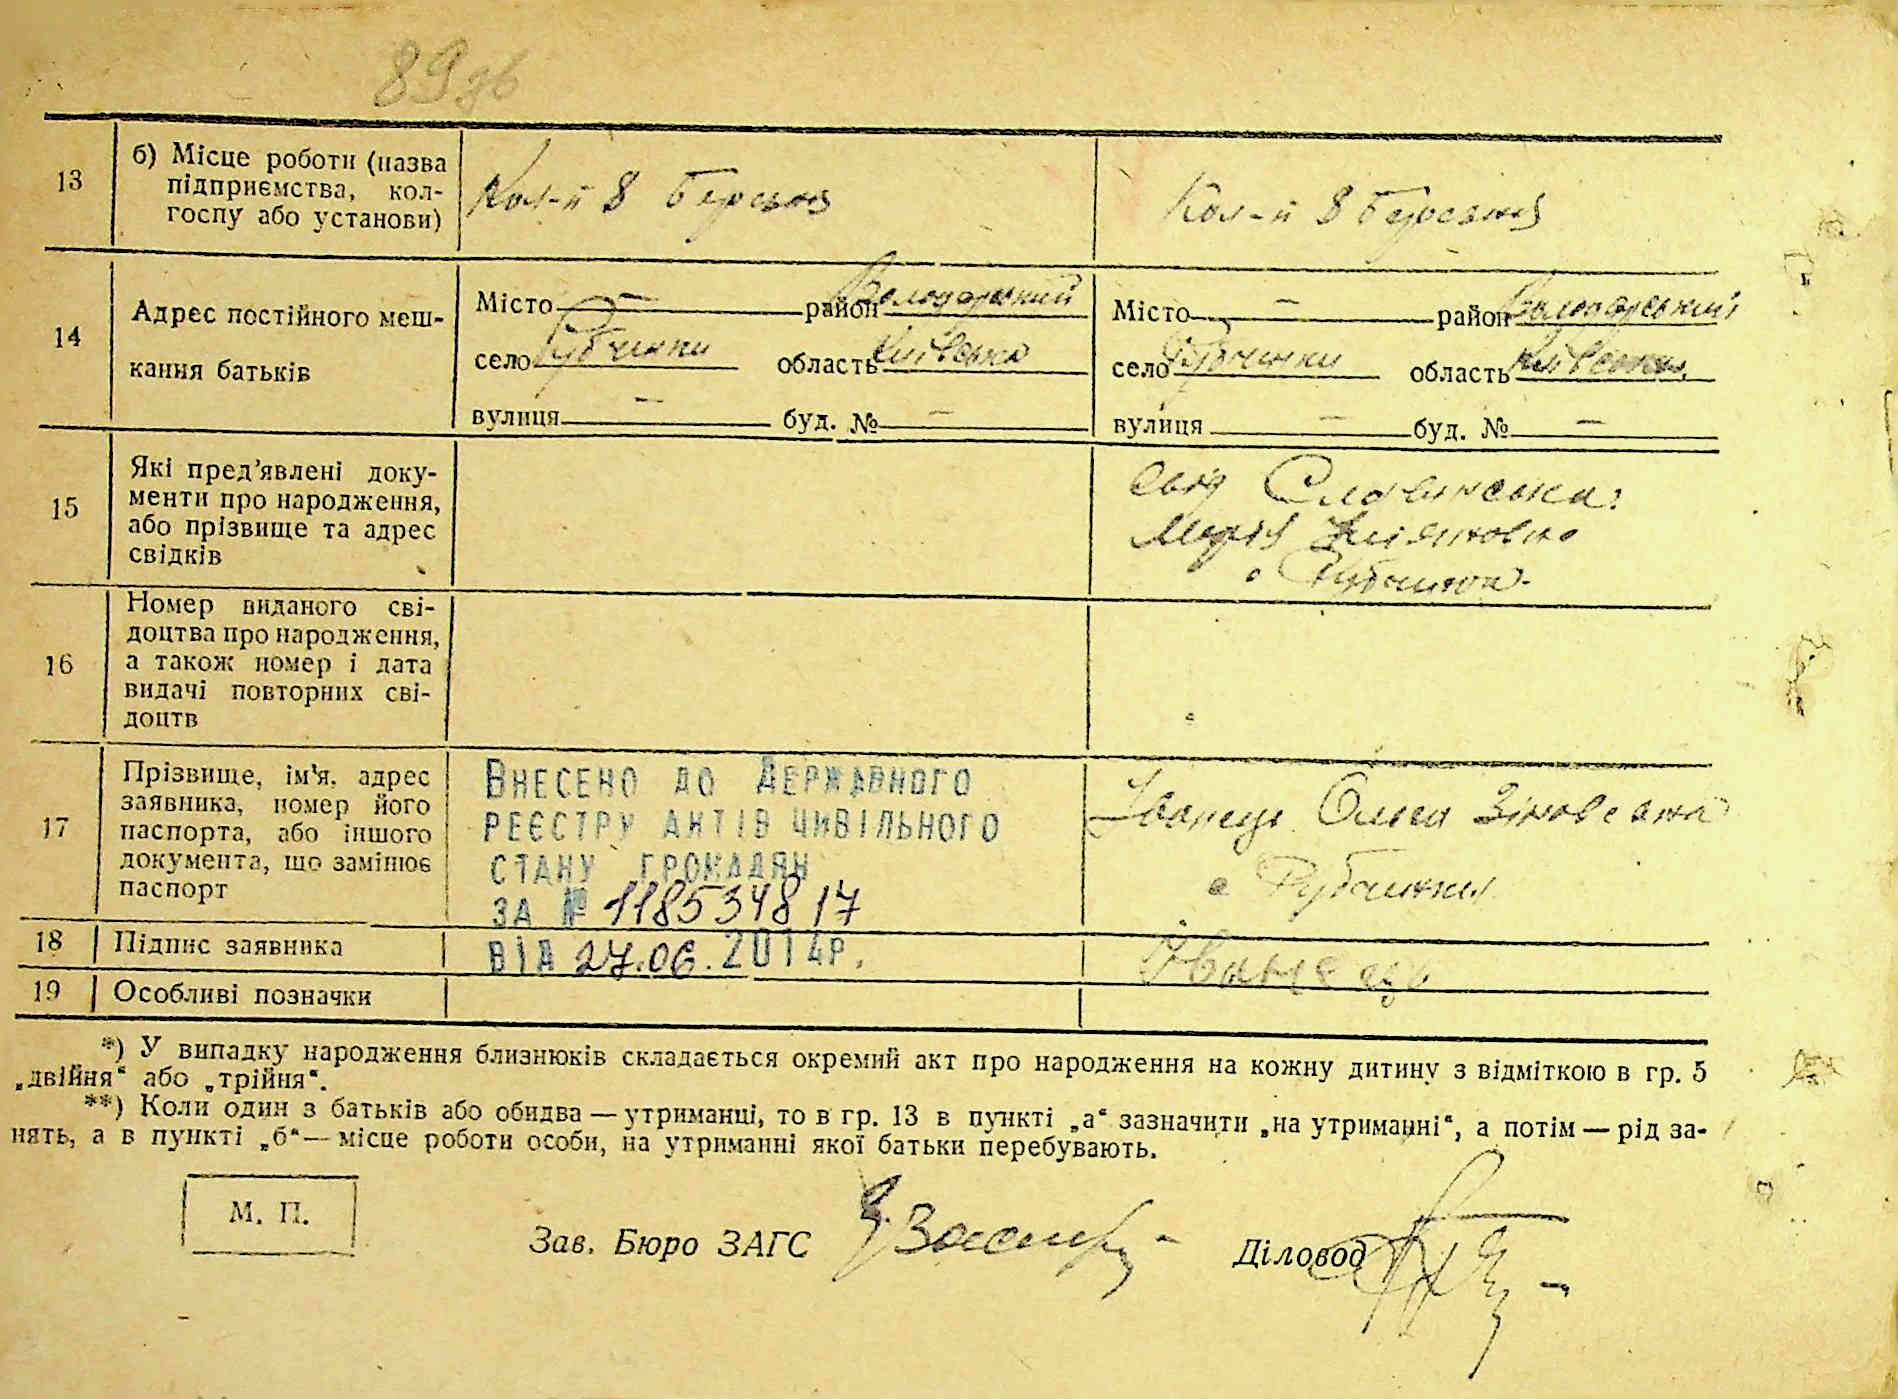 89зв
13
б) Місце роботи (назва
підприємства, кол-
госпу або установи)
Кол-п 8 Березня
Кол-п 8 Березня
14
Адрес постійного меш-
кання батьків
Місто — район Володарський
село Рубчинки область Київська
вулиця — буд. № —
Місто — район Володарський
село Рубчинки область Київська
вулиця — буд. № —
15
Які пред'явлені доку-
менти про народження,
або прізвище та адрес
свідків
свід Славинська
Марія
с Рубчинки
16
Номер виданого сві-
доцтва про народження,
а також номер і дата
видачі повторних сві-
доцтв
17
Прізвище, ім'я, адрес
заявника, номер його
паспорта, або іншого
документа, що замінює
паспорт
Внесено до Державного
реєстру актів цивільного
стану громадян
за № 1185348 17
від 27.06.2014р.
Іванець Ольга Зіновєвна
с Рубчинки
18
Підпис заявника
19
Особливі позначки
*) У випадку народження близнюків складається окремий акт про народження на кожну дитину з відміткою в гр. 5
„двійня“ або „трійня“.
**) Коли один з батьків або обидва — утриманці, то в гр. 13 в пункті „а“ зазначити „на утриманні“, а потім — рід за-
нять, а в пункті „б“ — місце роботи особи, на утриманні якої батьки перебувають.
М. П.
Зав. Бюро ЗАГС
Діловод